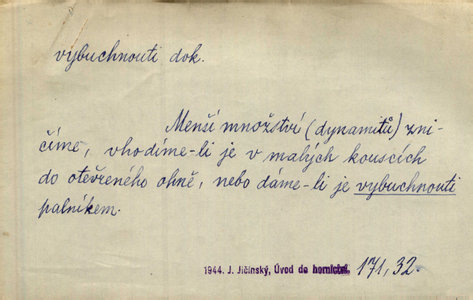 vybuchnouti dok.
Menší množství (dynamitů) zni-
číme, vhodíme-li je v malých kouscích
do otevřeného ohně, nebo dáme-li je vybuchnouti
palníkem.
1944. J. Jičínský, Úvod de hornictví. 171, 32.